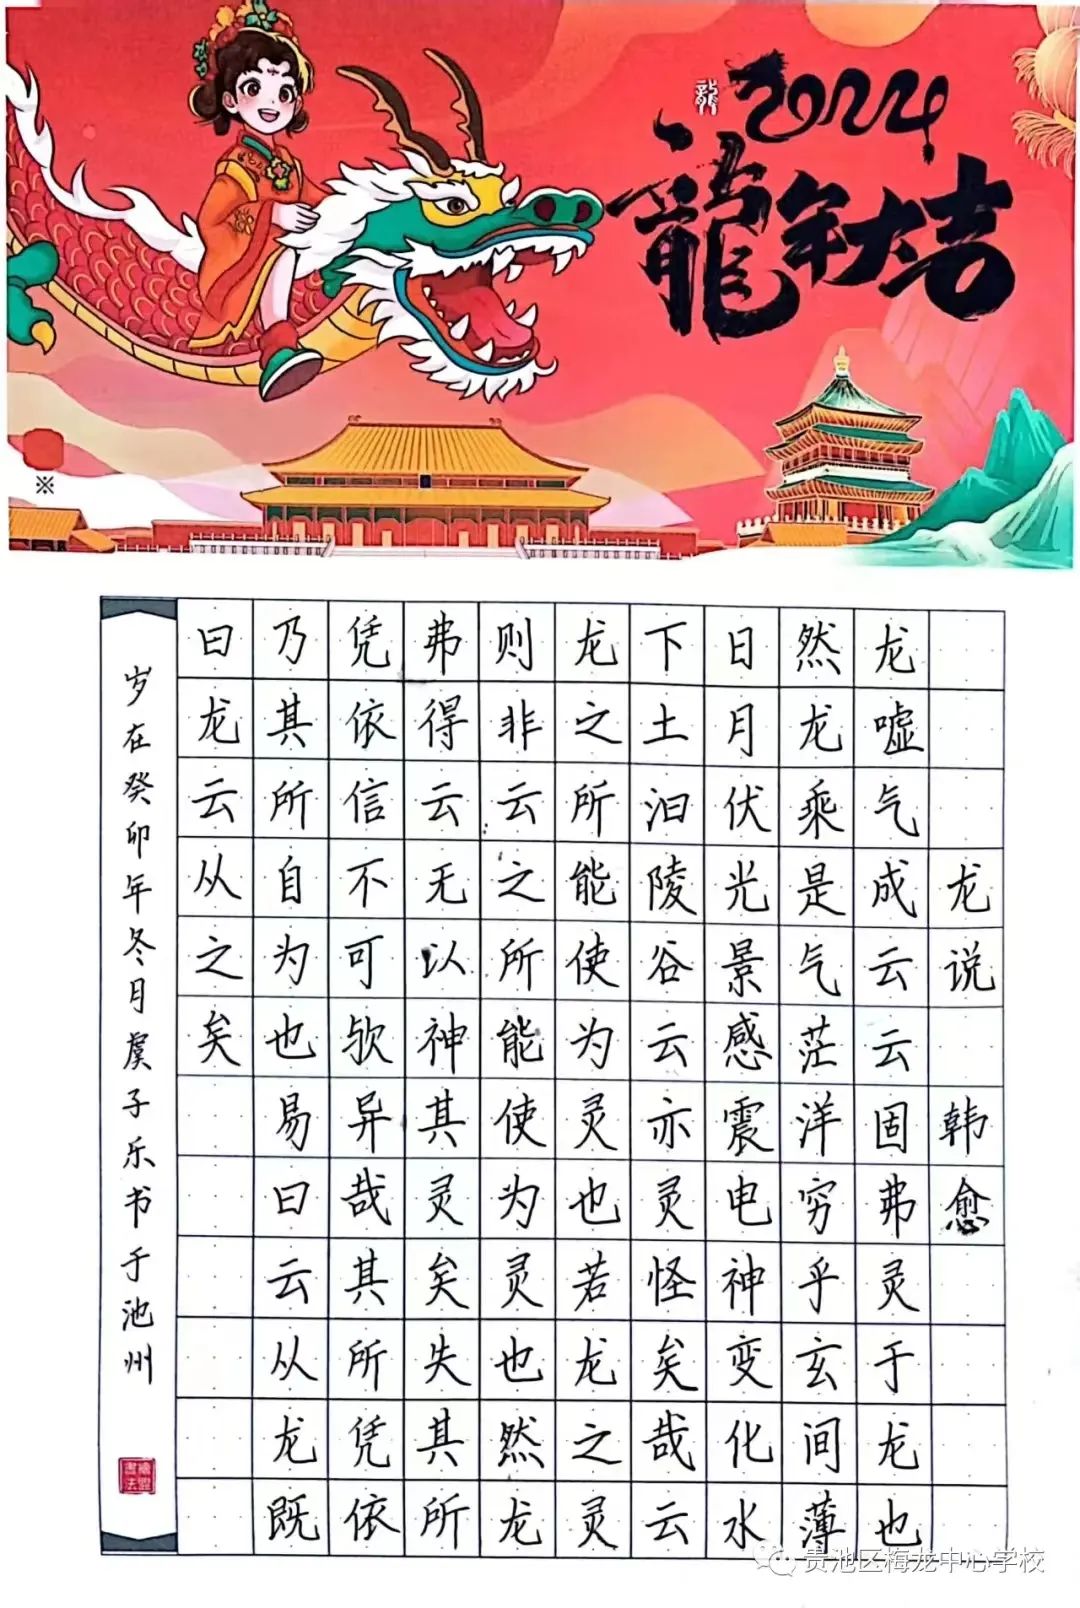 龍
2024
龍年大吉
※
龙说 韩愈
龙嘘气成云云固弗灵于龙也
然龙乘气是气茫洋穷乎玄间薄
日月伏光景感震电神变化水
下土汩陵谷云亦灵怪矣哉云
龙之所能使为灵也若龙之灵
则非云之所能使为灵也然龙
弗得云无以神其灵矣失其所
凭依信不可欤异哉其所凭依
乃其所自为也易曰云从龙既
曰龙云从之矣
岁在癸卯年冬月虞子乐书于池州
贵池区梅龙中心学校